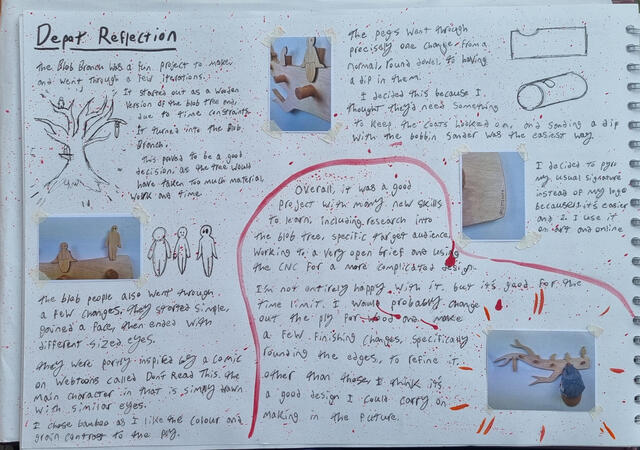 Depot Reflection
the Blob Branch was a fun project to make
and went through a few iterations.
It started out as a wooden
version of the blob tree and,
due to time constraints
It turned into the Blob
Branch.
this proved to be a good
decision, as the tree would
have taken too much material,
work and time
the blob people also went through
a few changes, they started simple,
gained a face, then ended with
different sized eyes.
they were partly inspired by a comic
on Webtoons called Don't Read This. the
main character in that is simply drawn
with similar eyes.
I chose bamboo as I like the colour and
grain contrast to the ply.
the pegs went through
precisely one change. from a
normal, round dowel, to having
a dip in them.
I decided this because I
thought they'd need something
to keep the coats hooked on, and sanding a dip
with the bobbin sander was the easiest way
I decided to pyro
my usual signature
instead of my logo
because 1. it's easier
and 2. I use it
on art and online
Overall, it was a good
project with many new skills
to learn, including research into
the blob tree, specific target audience,
working to a very open brief and using
the CNC for a more complicated design.
I'm not entirely happy with it, but it's good for the
time limit. I would probably change
out the ply for wood and make
a few finishing changes, specifically
rounding the edges, to refine it.
other than those, I think it's
a good design I could carry on
making in the future.